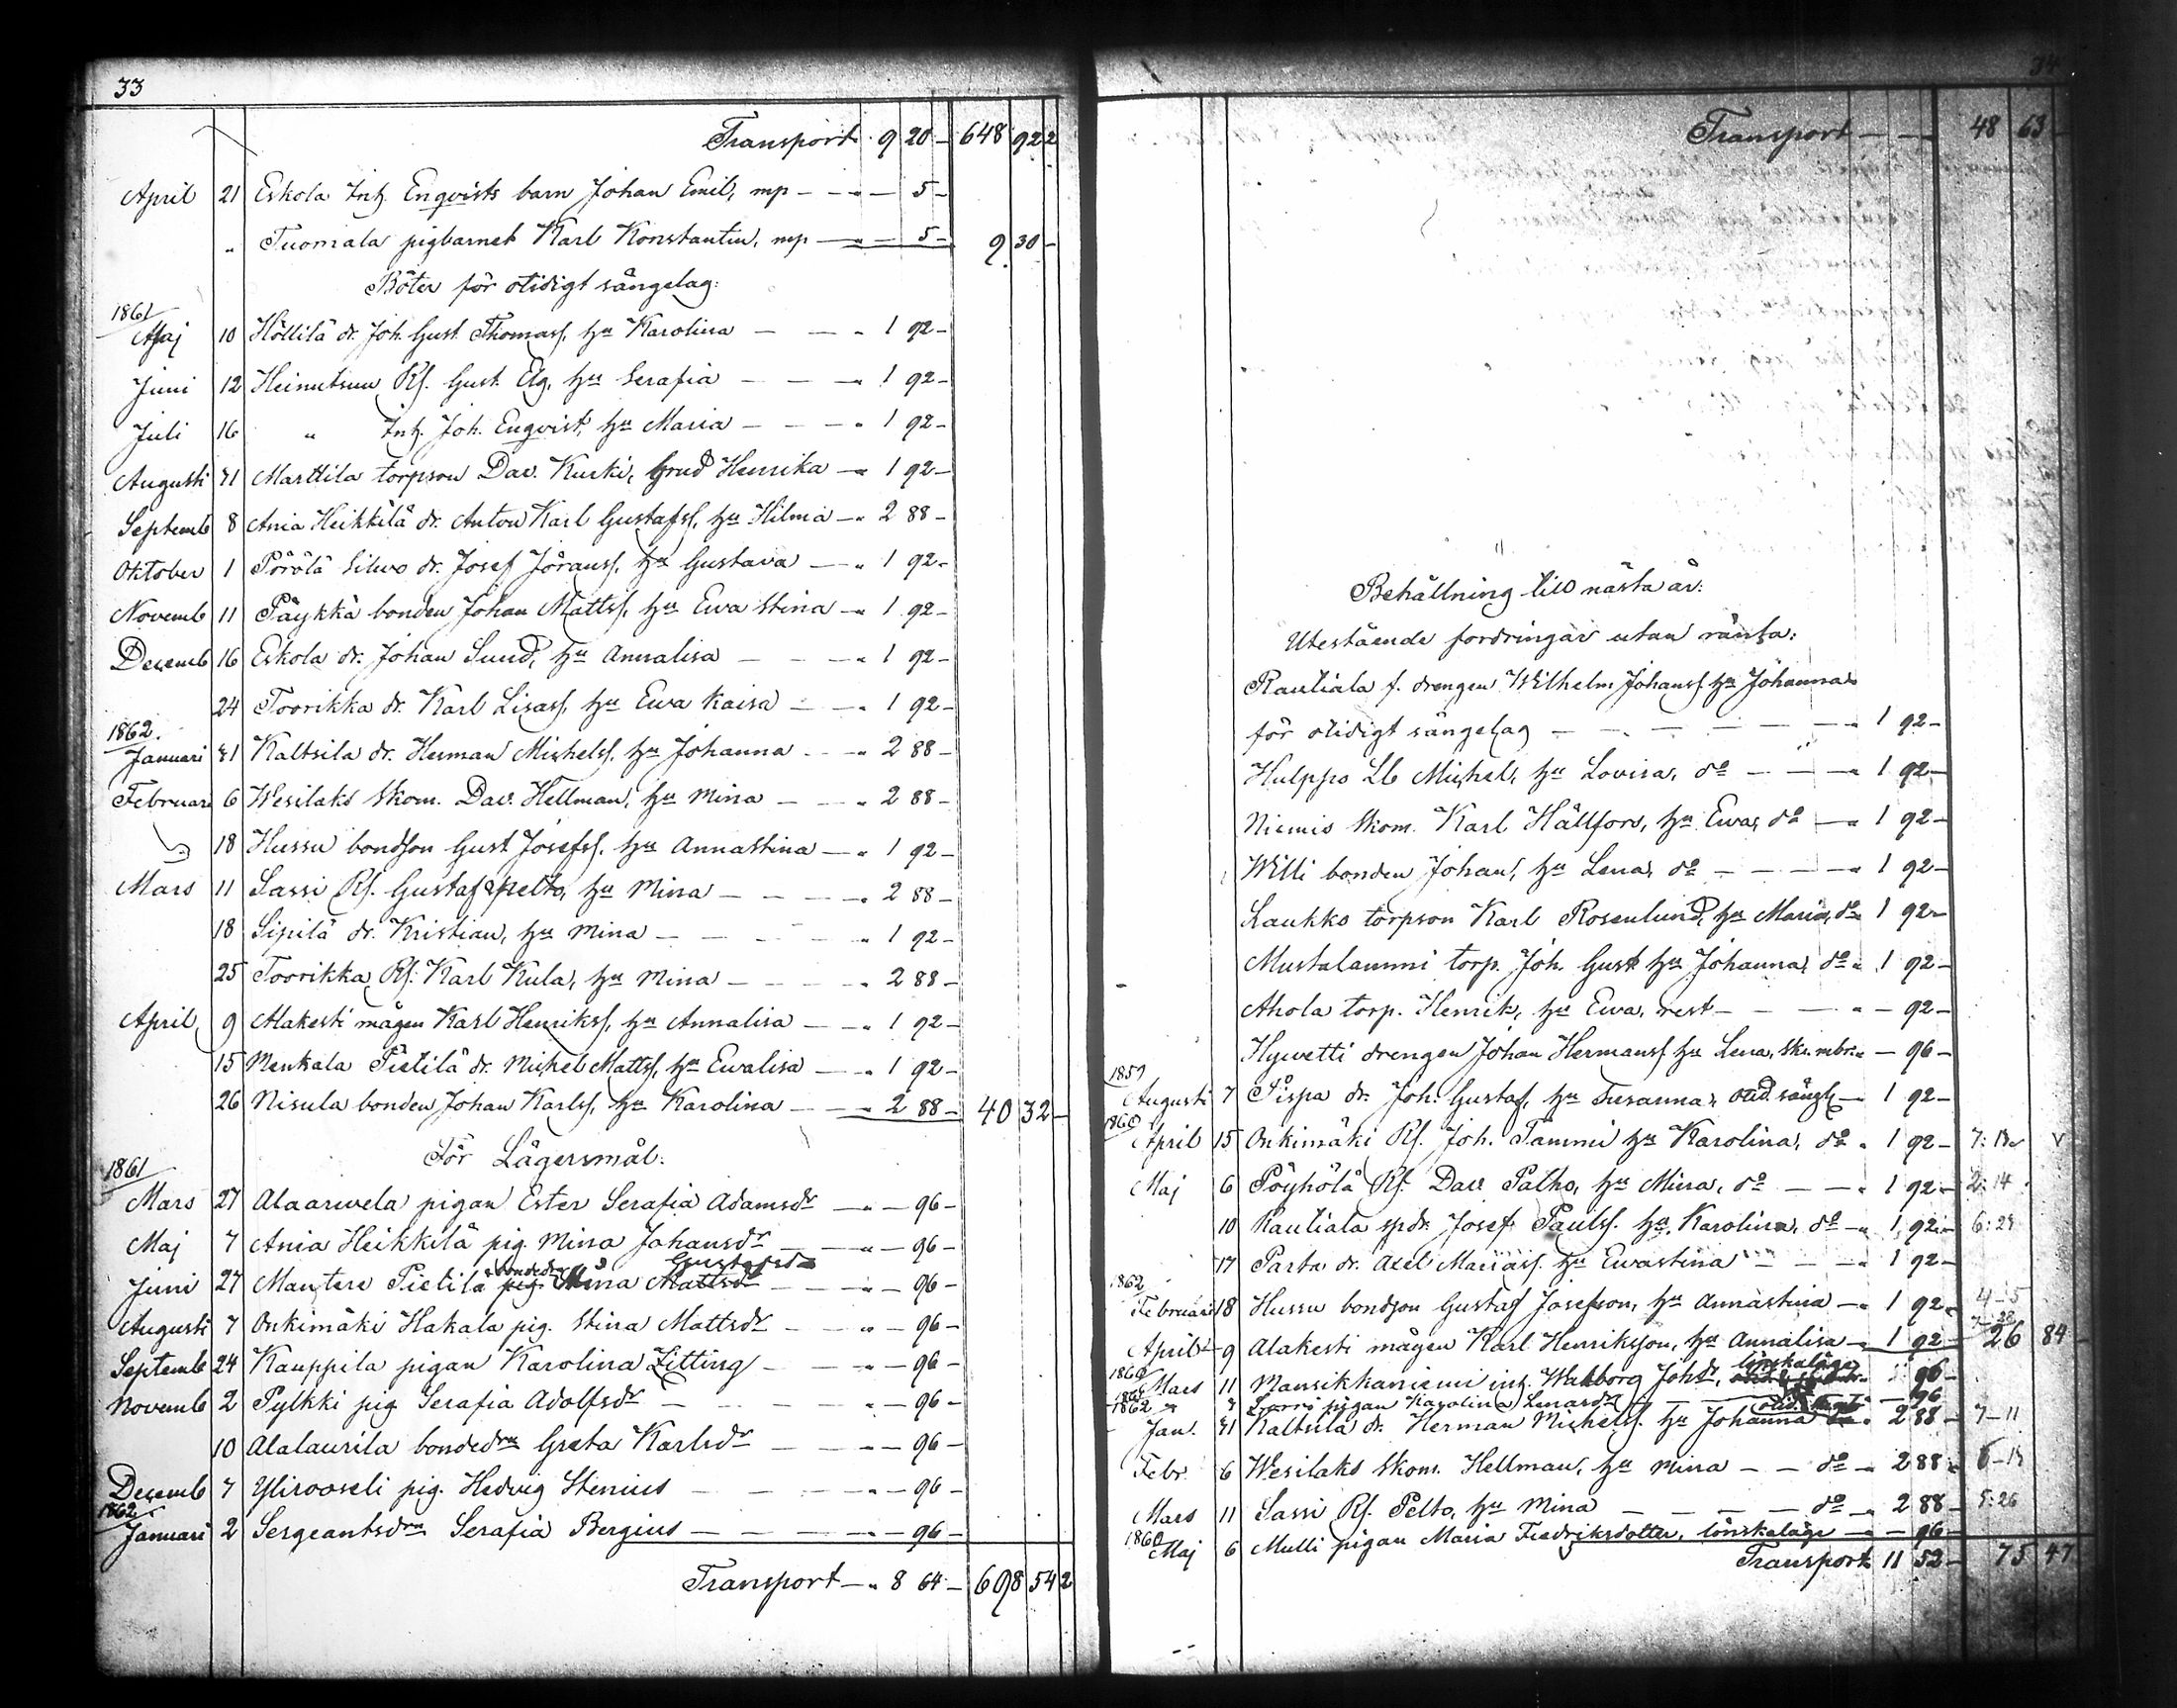 33
Transport 9 20 — 648 92 2
April 21 Eskola Inh. Enqvists barn Johan Emil, mp — — " — 5 —
" Tuomala pigbarnet Karl Konstantin, mp — " — 5 — 9 30 —
Böter för otidigt sängelag:
1861
Maj 10 Höllilä dr. Joh. Gust. Thomass. hu Karolina — — " 1 92 —
Juni 12 Heinutsuu Rf. Gust. Elg, hu Serafia — — " 1 92 —
Juli 16 " Inh. Joh. Enqvist, hu Maria — — " 1 92 —
Augusti 31 Marttila torpson Dav. Kurki, brud Henrika — " 1 92 —
Septemb 8 Ania Heikkilä dr. Anton Karl Gustafss. hu Hilma — " 2 88 —
Oktober 1 Pörölä Silwo dr. Josef Jöranss. hu Gustava — " 1 92 —
Novemb 11 Päykkä bonden Johan Mattss. hu Ewa Stina — " 1 92 —
Decemb 16 Eskola dr. Johan Sund, hu Annalisa — — " 1 92 —
24 Toorikka dr. Karl Lisass. hu Ewa Kaisa — " 1 92 —
1862.
Januari 31 Kaltsila dr. Herman Michelss. hu Johanna — " 2 88 —
Februari 6 Wesilaks Skom. Dav. Hellman, hu Mina — — " 2 88 —
18 Hussu bondson Gust Josefss. hu Annastina — " 1 92 —
Mars 11 Sassi Rf. Gustaf Pelto, hu Mina — — — " 2 88 —
18 Sipilä dr. Kristian, hu Mina — — — " 1 92 —
25 Toorikka Rf. Karl Kula, hu Mina — — — " 2 88 —
April 9 Alakesti mågen Karl Henrikss. hu Annalisa — " 1 92 —
15 Menkala Pietilä dr. Michel Mattss. hu Ewalisa — " 1 92 —
26 Nisula bonden Johan Karlss. hu Karolina — — " 2 88 — 40 32 —
För Lägersmål:
1861
Mars 27 Alaarwela pigan Ester Serafia Adamsdr — " — 96 —
Maj 7 Ania Heikkilä pig. Mina Johansdr — — " — 96 —
bondedr Gustafsdr
Juni 27 Mantere Pietilä pig. Mina Mattsdr — — " — 96 —
Augusti 7 Onkimäki Hakala pig. Stina Mattsdr — — " — 96 —
Septemb 24 Kauppila pigan Karolina Zitting — — " — 96 —
Novemb 2 Pylkki pig Serafia Adolfsdr — — " — 96 —
10 Alalaurila bondedrn Greta Karlsdr — — " — 96 —
Decemb 7 Yliroosseli pig. Hedvig Stenius — — " — 96 —
1862
Januari 2 Sergeantsdrn Serafia Bergius — — — " — 96 —
Transport — " 8 64 — 698 54 2
34
Transport — — 48 63 —
Behållning till nästa år:
Utestående fordringar utan ränta:
Rautiala f. drengen Wilhelm Johanss. hu Johanna
för otidigt sängelag — — — — " 1 92 —
Hulppo Lb Michel, hu Lovisa, do — — " 1 92 —
Niemis Skom. Karl Hällfors, hu Ewa, do — " 1 92 —
Willi bonden Johan, hu Lena, do — — — " 1 92 —
Laukko torpson Karl Rosenlund, hu Maria, do " 1 92 —
Mustalammi torp. Joh. Gust hu Johanna, do " 1 92 —
Ahola torp. Henrik, hu Ewa, rest — — — " — 92 —
Hywetti drengen Johan Hermanss. hu Lena, " — 96 —
1859
Augusti 7 Pispa dr. Joh. Gustaf, hu Susanna, otid. sängl — 1 92 —
1860
April 15 Onkimäki Rf. Joh. Tammi hu Karolina, do " 1 92 —
Maj 6 Pöyhölä Rf. Dav Palho, hu Mina, do — — " 1 92 — 2:14
10 Rautiala spdr. Josef Paulss. hu Karolina, do — " 1 92 —
17 Parta dr. Axel hu Ewastina " — — " 1 92 —
1862
Februari 18 Hussu bondson Gustaf Josefsson, hu Annastina — " 1 92 — 4-5
April 9 Alakesti mågen Karl Henriksson, hu Annalisa — 1 92 — 26 84 —
1860
Mars 11 Mansikkaniemi inh. Walborg Johdr, lönskaläge — 96 —
pigan Karolina Lenardr — — 96
1862
Jan. 31 Kaltsila dr. Herman Michelss. hu Johanna " 2 88 — 7-11
Febr. 6 Wesilaks Skom. Hellman, hu Mina — — do — 2 88 —
Mars 11 Sassi Rf. Pelto, hu Mina — — — do — 2 88 — 5:26
1860
Maj 6 Mulli pigan Maria Fredriksdotter, lönskaläge — " — 96 —
Transport 11 52 — 75 47